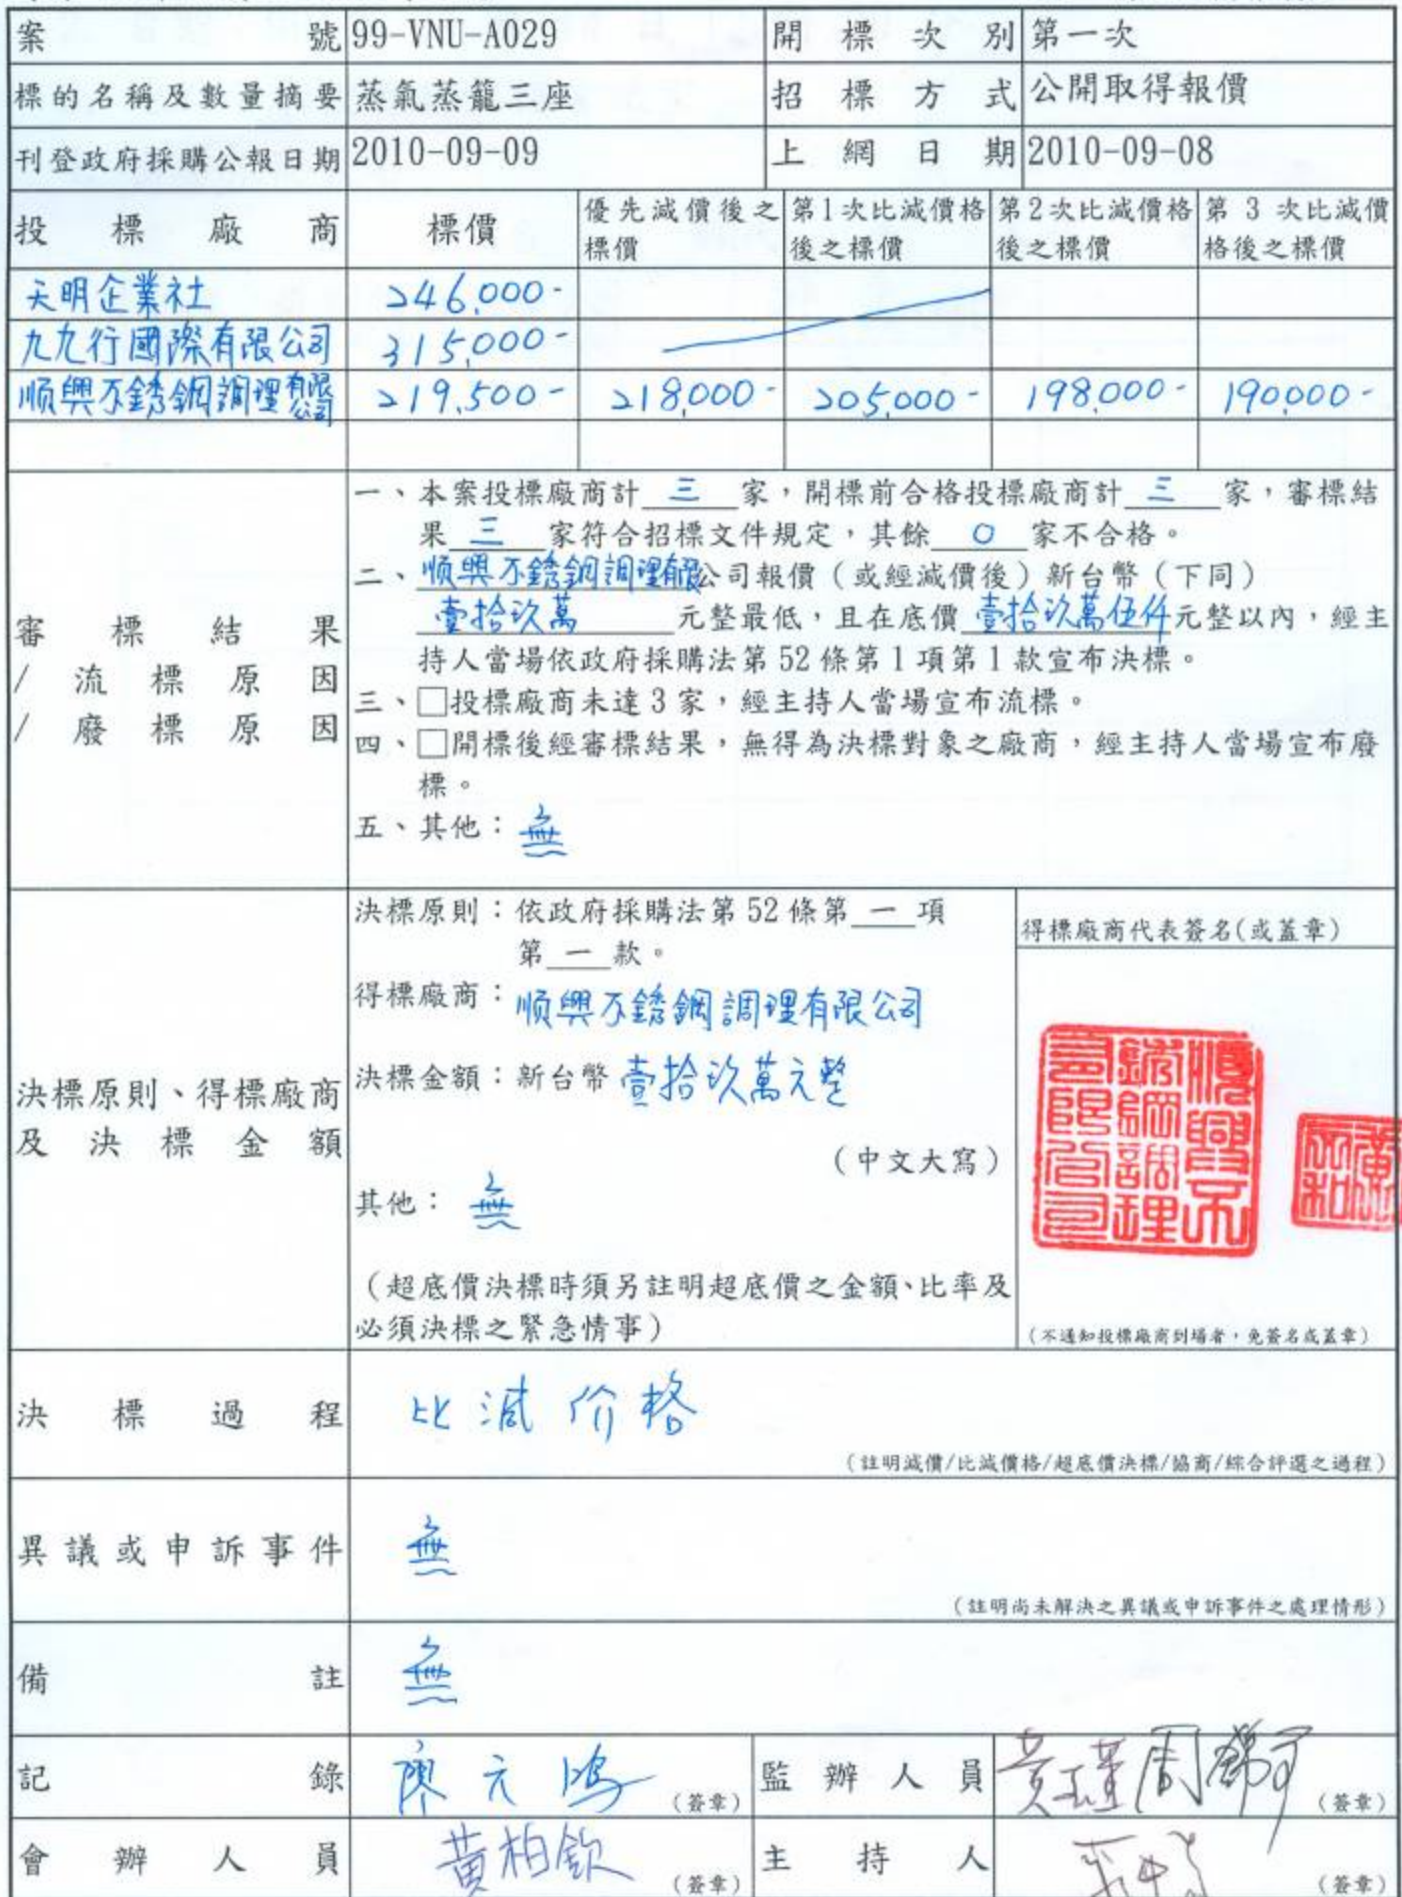 案號 99-VNU-A029 開標次別 第一次
標的名稱及數量摘要 蒸氣蒸籠三座 招標方式 公開取得報價
刊登政府採購公報日期 2010-09-09 上網日期 2010-09-08
投標廠商 標價 優先減價後之標價 第1次比減價格後之標價 第2次比減價格後之標價 第3次比減價格後之標價
天明企業社 246,000-
九九行國際有限公司 315,000-
順興不銹鋼調理有限公司 219,500- 218,000- 205,000- 198,000- 190,000-
審標結果
/流標原因
/廢標原因
一、本案投標廠商計 三 家，開標前合格投標廠商計 三 家，審標結
果 三 家符合招標文件規定，其餘 0 家不合格。
二、順興不銹鋼調理有限公司報價（或經減價後）新台幣（下同）
壹拾玖萬 元整最低，且在底價 壹拾玖萬伍仟元整以內，經主
持人當場依政府採購法第52條第1項第1款宣布決標。
三、□投標廠商未達3家，經主持人當場宣布流標。
四、□開標後經審標結果，無得為決標對象之廠商，經主持人當場宣布廢
標。
五、其他：無
決標原則、得標廠商
及決標金額
決標原則：依政府採購法第52條第 一 項
第 一 款。
得標廠商：順興不銹鋼調理有限公司
決標金額：新台幣 壹拾玖萬元整
（中文大寫）
其他：無
（超底價決標時須另註明超底價之金額、比率及
必須決標之緊急情事）
得標廠商代表簽名(或蓋章)
順興不
銹鋼調理
有限公司
（不通知投標廠商到場者，免簽名或蓋章）
決標過程 比減价格
（註明減價/比減價格/超底價決標/協商/綜合評選之過程）
異議或申訴事件 無
（註明尚未解決之異議或申訴事件之處理情形）
備註 無
記錄 廖元鴻 （簽章） 監辦人員 （簽章）
會辦人員 黃柏欽 （簽章） 主持人 （簽章）